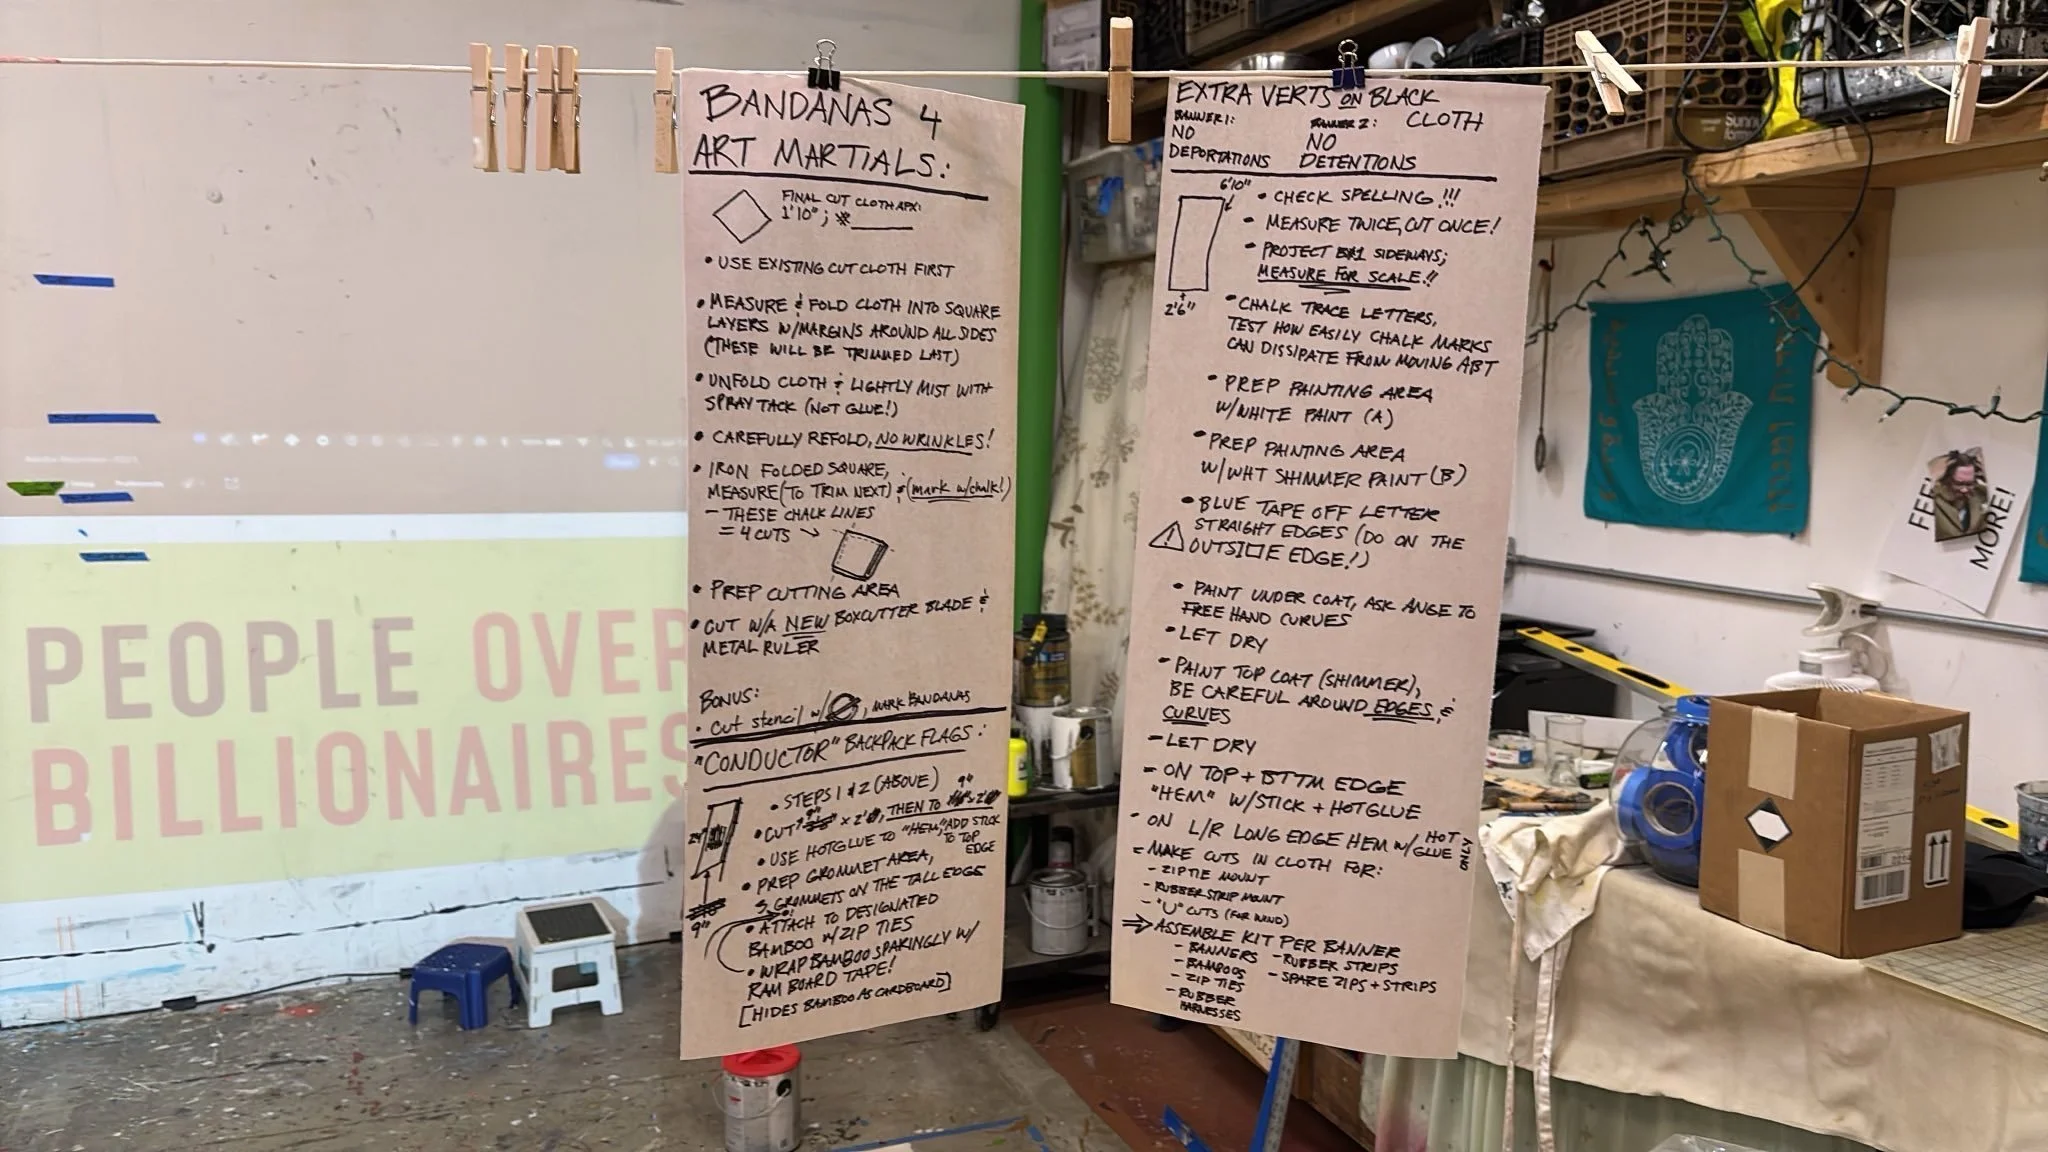 BANDANAS 4
ART MARTIALS:
FINAL CUT CLOTH APX:
1'10" ; *
• USE EXISTING CUT CLOTH FIRST
• MEASURE & FOLD CLOTH INTO SQUARE
LAYERS W/MARGINS AROUND ALL SIDES
(THESE WILL BE TRIMMED LAST)
• UNFOLD CLOTH & LIGHTLY MIST WITH
SPRAY TACK (NOT GLUE!)
• CAREFULLY REFOLD, NO WRINKLES!
• IRON FOLDED SQUARE,
MEASURE (TO TRIM NEXT) & (mark w/chalk!)
- THESE CHALK LINES
= 4 CUTS →
• PREP CUTTING AREA
• CUT W/A NEW BOXCUTTER BLADE &
METAL RULER
BONUS:
• Cut stencil w/ , MARK BANDANAS
"CONDUCTOR" BACKPACK FLAGS:
• STEPS 1 & 2 (ABOVE)
• CUT 9" x 2', THEN TO 9"
• USE HOTGLUE TO "HEM," ADD STICK
TO TOP
EDGE
• PREP GROMMET AREA,
3 GROMMETS ON THE TALL EDGE
• ATTACH TO DESIGNATED
BAMBOO W/ ZIP TIES
• WRAP BAMBOO SPARINGLY W/
RAM BOARD TAPE!
[HIDES BAMBOO AS CARDBOARD]
24"
9"
EXTRA VERTS ON BLACK
CLOTH
BANNER 1:
NO
DEPORTATIONS
BANNER 2:
NO
DETENTIONS
6'10"
2'6"
• CHECK SPELLING!!!
• MEASURE TWICE, CUT ONCE!
• PROJECT #1 SIDEWAYS;
MEASURE FOR SCALE!!
• CHALK TRACE LETTERS,
TEST HOW EASILY CHALK MARKS
CAN DISSIPATE FROM MOVING ART
• PREP PAINTING AREA
W/WHITE PAINT (A)
• PREP PAINTING AREA
W/WHT SHIMMER PAINT (B)
• BLUE TAPE OFF LETTER
STRAIGHT EDGES (DO ON THE
OUTSIDE EDGE!)
• PAINT UNDER COAT, ASK ANGE TO
FREE HAND CURVES
• LET DRY
• PAINT TOP COAT (SHIMMER),
BE CAREFUL AROUND EDGES &
CURVES
- LET DRY
- ON TOP + BTTM EDGE
"HEM" W/STICK + HOTGLUE
- ON L/R LONG EDGE HEM W/ HOT
GLUE ONLY
- MAKE CUTS IN CLOTH FOR:
- ZIPTIE MOUNT
- RUBBER STRIP MOUNT
- "U" CUTS (FOR WIND)
⇒ ASSEMBLE KIT PER BANNER
- BANNERS
- BAMBOOS
- ZIP TIES
- RUBBER
HARNESSES
- RUBBER STRIPS
- SPARE ZIPS + STRIPS
PEOPLE OVER
BILLIONAIRES
FEEL
MORE!